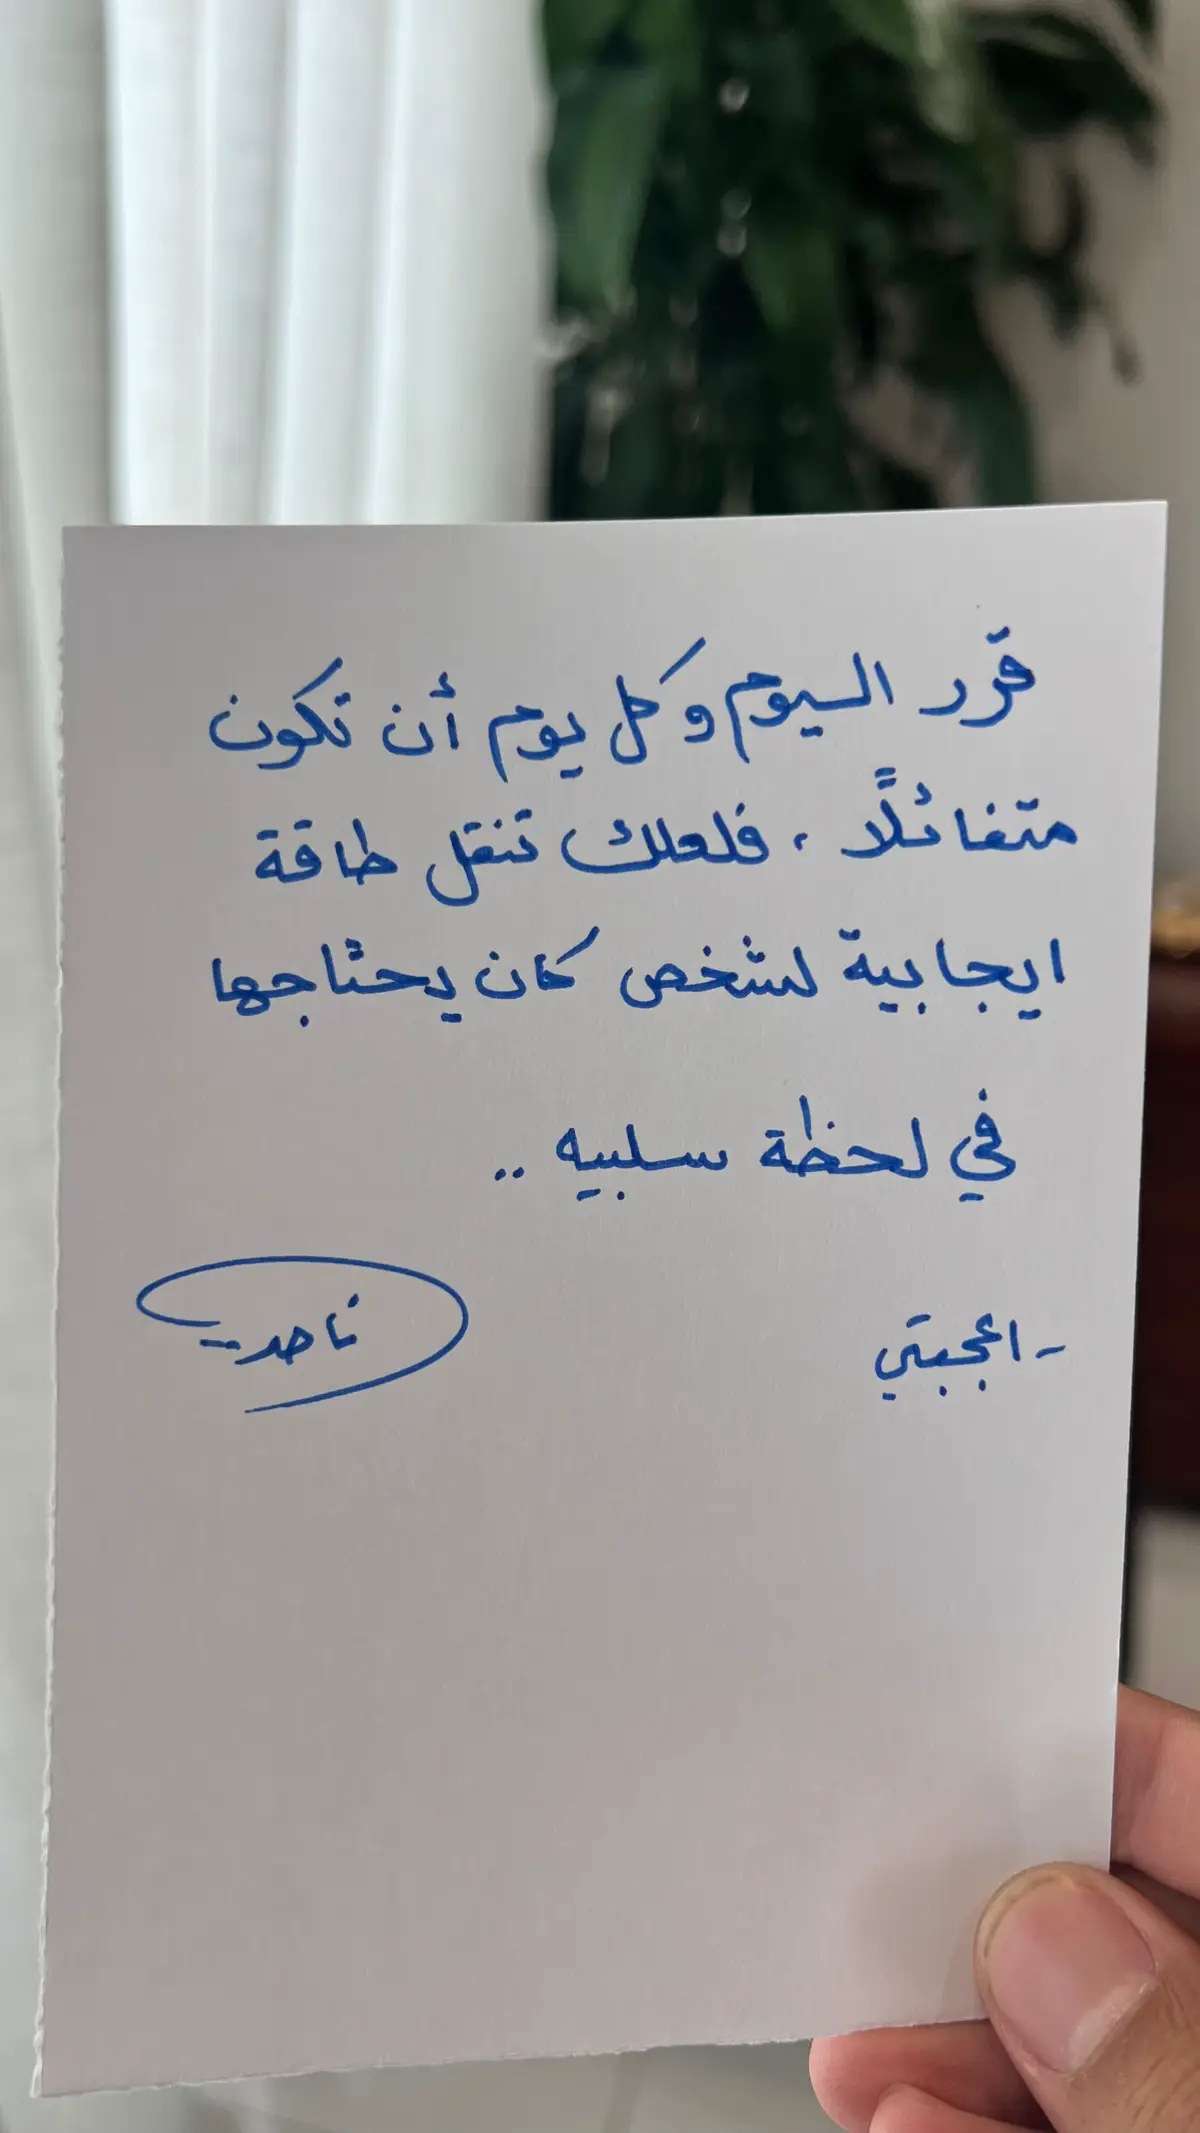 قرر اليوم وكل يوم أن تكون
متفائلًا ، فلعلك تنقل طاقة
ايجابية لشخص كان يحتاجها
في لحظة سلبيه ..
- اعجبتي